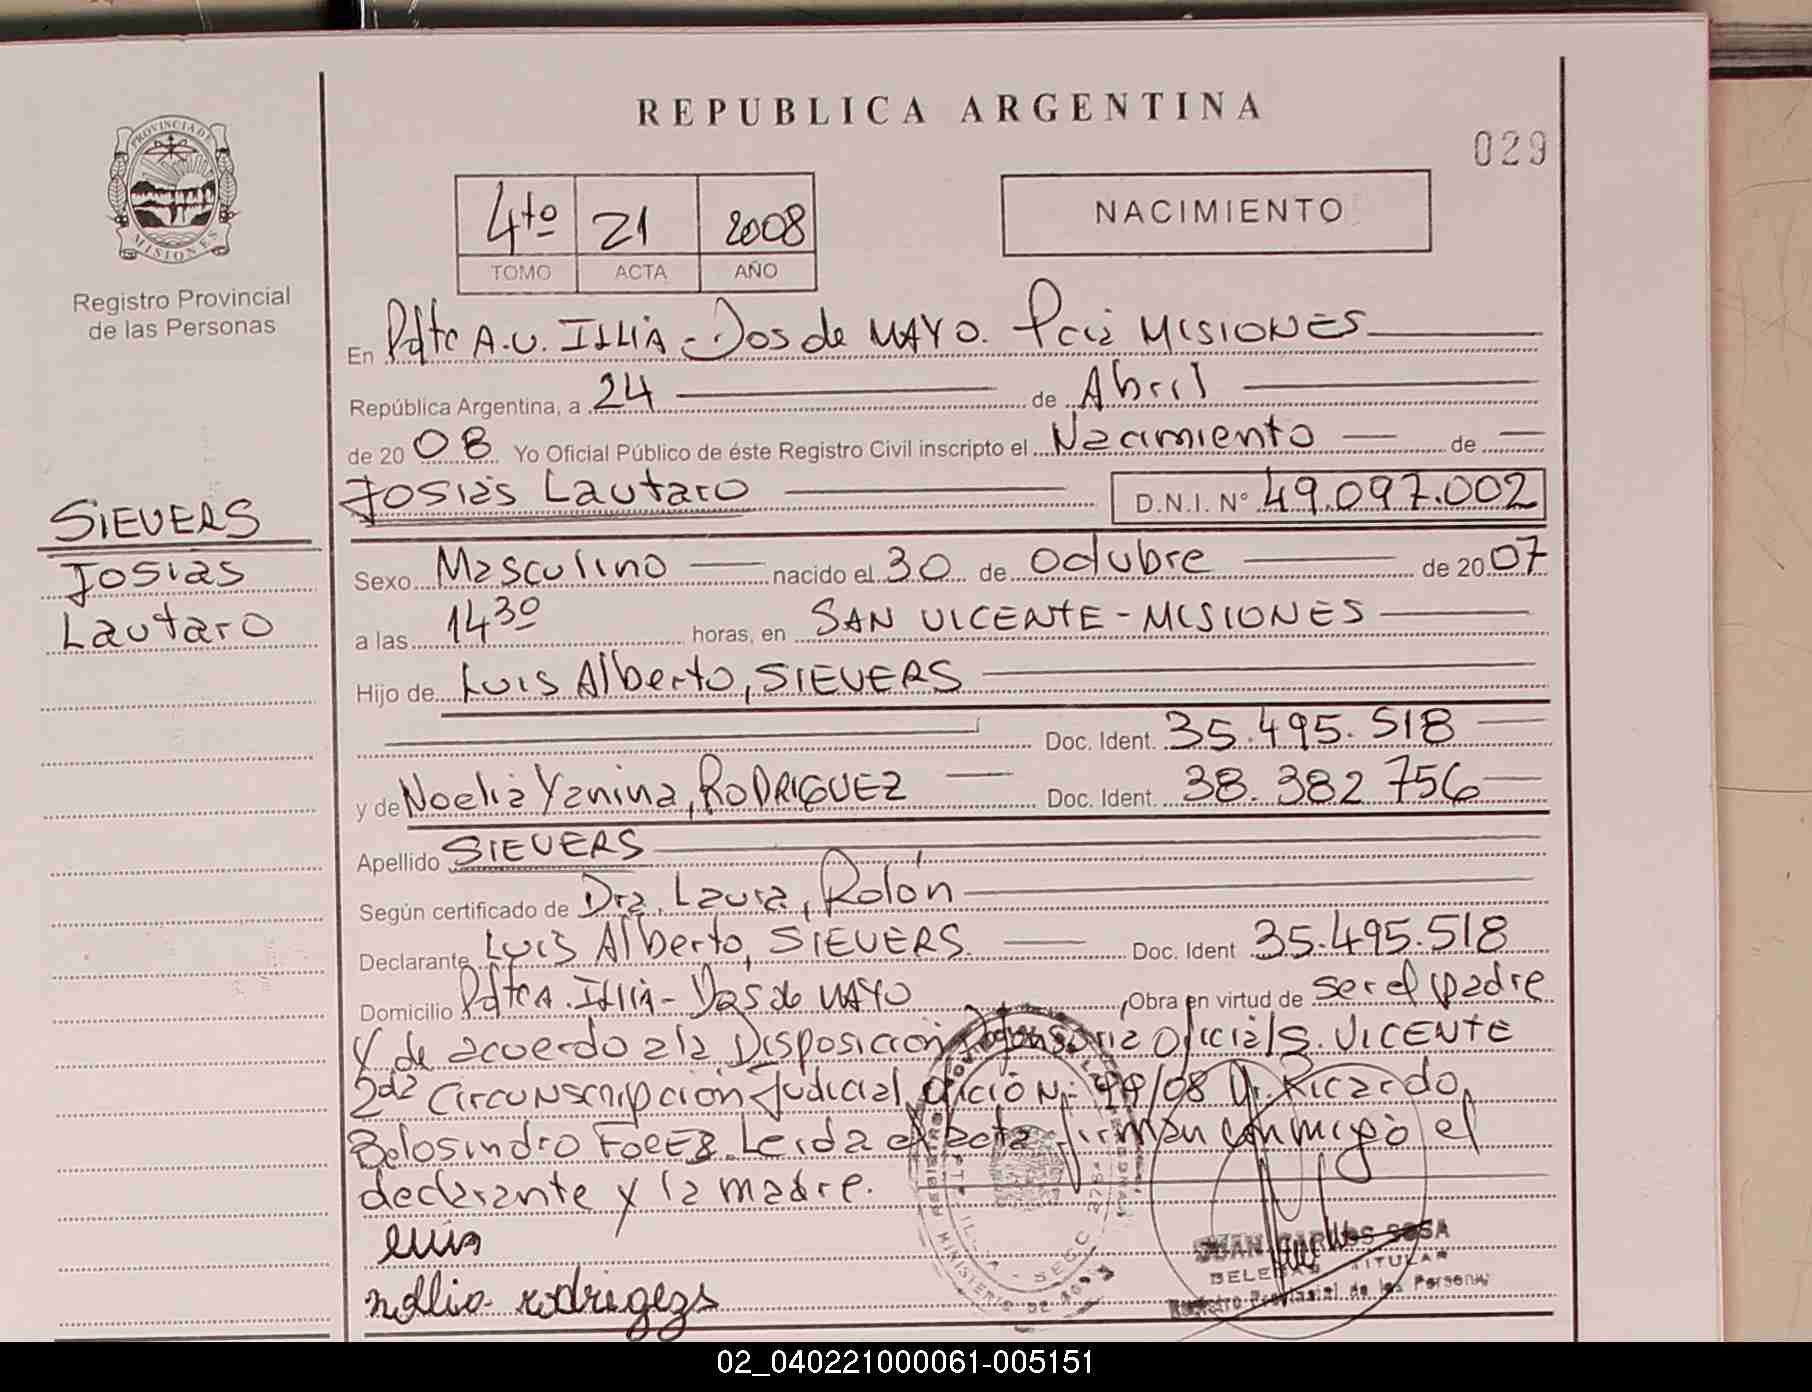 REPUBLICA ARGENTINA
029
PROVINCIA DE
MISIONES
Registro Provincial
de las Personas
4to 21 2008
TOMO ACTA AÑO
NACIMIENTO
En Pdte A.U. ILLIA - Dos de MAYO. Pcia MISIONES
República Argentina, a 24 de Abril
de 2008 Yo Oficial Público de éste Registro Civil inscripto el Nacimiento de
Josias Lautaro D.N.I. Nº 49.097.002
SIEVERS
Josias
Lautaro
Sexo Masculino nacido el 30 de Octubre de 2007
a las 14 30 horas, en SAN VICENTE - MISIONES
Hijo de Luis Alberto, SIEVERS
Doc. Ident. 35.495.518
y de Noelia Yanina, RODRIGUEZ Doc. Ident. 38.382 756
Apellido SIEVERS
Según certificado de Dra. Laura, Rolón
Declarante Luis Alberto, SIEVERS. Doc. Ident 35.495.518
Domicilio Pdte A. Illia - Dos de MAYO Obra en virtud de ser el padre
Y de acuerdo a la Disposición Defensoria Oficial S. VICENTE
2da Circunscripción Judicial, oficio N: /08 Ricardo
Leida el acta firman conmigo el
declarante y la madre.
Luis
rodrigezs
JUAN CARLOS SOSA
DELEGADO TITULAR
Registro Provincial de las Personas
02_040221000061-005151